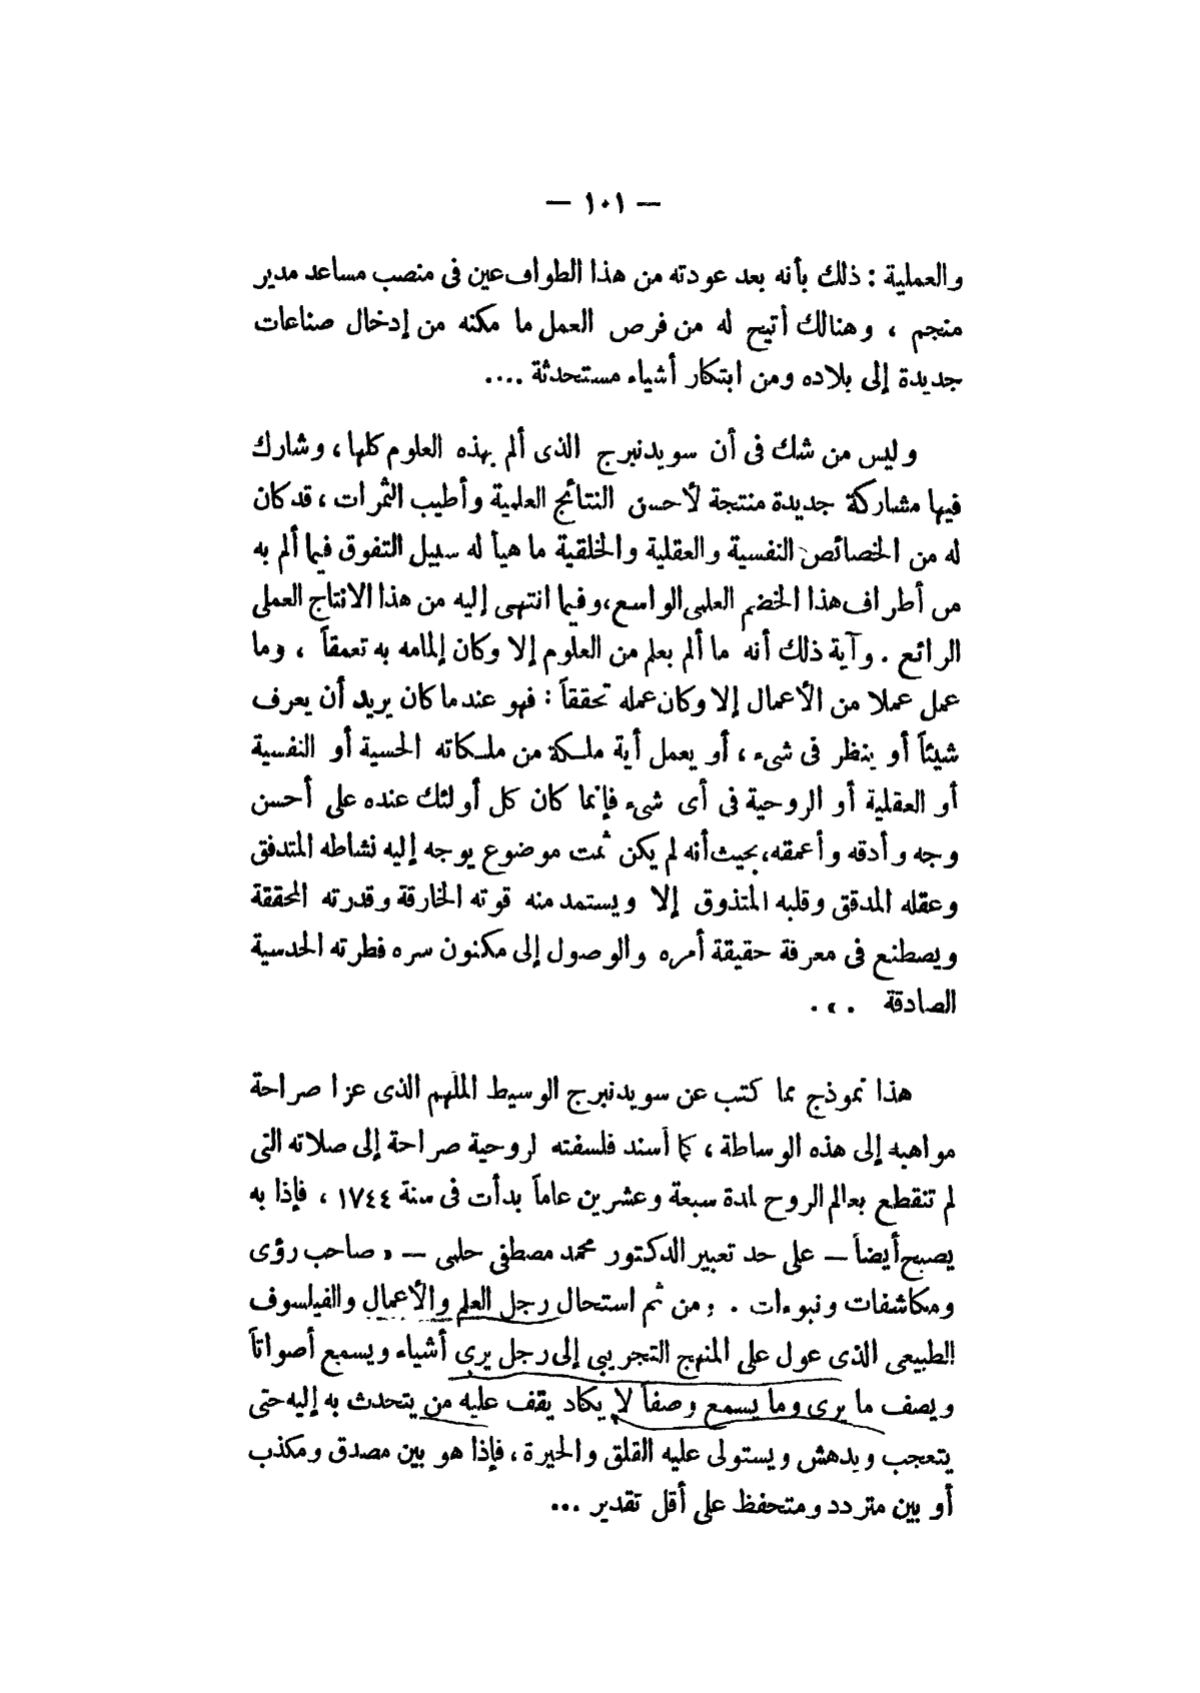 — ١٠١ —
والعملية : ذلك بأنه بعد عودته من هذا الطواف عين فى منصب مساعد مدير
منجم ، وهنالك أتيح له من فرص العمل ما مكنه من إدخال صناعات
جديدة إلى بلاده ومن ابتكار أشياء مستحدثة ....
وليس من شك فى أن سويدنبرج الذى ألم بهذه العلوم كلها ، وشارك
فيها مشاركة جديدة منتجة لأحسن النتائج العلمية وأطيب الثمرات ، قد كان
له من الخصائص النفسية والعقلية والخلقية ما هيأ له سبيل التفوق فيما ألم به
من أطراف هذا الخضم العلمى الواسع ، وفيما انتهى إليه من هذا الانتاج العملى
الرائع . وآية ذلك أنه ما ألم بعلم من العلوم إلا وكان إلمامه به تعمقاً ، وما
عمل عملا من الأعمال إلا وكان عمله تحققاً : فهو عندما كان يريد أن يعرف
شيئاً أو ينظر فى شىء ، أو يعمل أية ملكة من ملكاته الحسية أو النفسية
أو العقلية أو الروحية فى أى شىء فإنما كان كل أولئك عنده على أحسن
وجه وأدقه وأعمقه ، بحيث أنه لم يكن ثمت موضوع يوجه إليه نشاطه المتدفق
وعقله المدقق وقلبه المتذوق إلا ويستمد منه قوته الخارقة وقدرته المحققة
ويصطنع فى معرفة حقيقة أمره والوصول إلى مكنون سره فطرته الحدسية
الصادقة ...
هذا نموذج مما كتب عن سويدنبرج الوسيط الملهم الذى عزا صراحة
مواهبه إلى هذه الوساطة ، كما أسند فلسفته لروحية صراحة إلى صلاته التى
لم تنقطع بعالم الروح لمدة سبعة وعشرين عاماً بدأت فى سنة ١٧٤٤ ، فإذا به
يصبح أيضاً — على حد تعبير الدكتور محمد مصطفى حلمى — « صاحب رؤى
ومكاشفات ونبوءات . ومن ثم استحال رجل العلم والأعمال والفيلسوف
الطبيعى الذى عول على المنهج التجريبى إلى رجل يرى أشياء ويسمع أصواتاً
ويصف ما يرى وما يسمع وصفاً لا يكاد يقف عليه من يتحدث به إليه حتى
يتعجب ويدهش ويستولى عليه القلق والحيرة ، فإذا هو بين مصدق ومكذب
أو بين متردد ومتحفظ على أقل تقدير ...